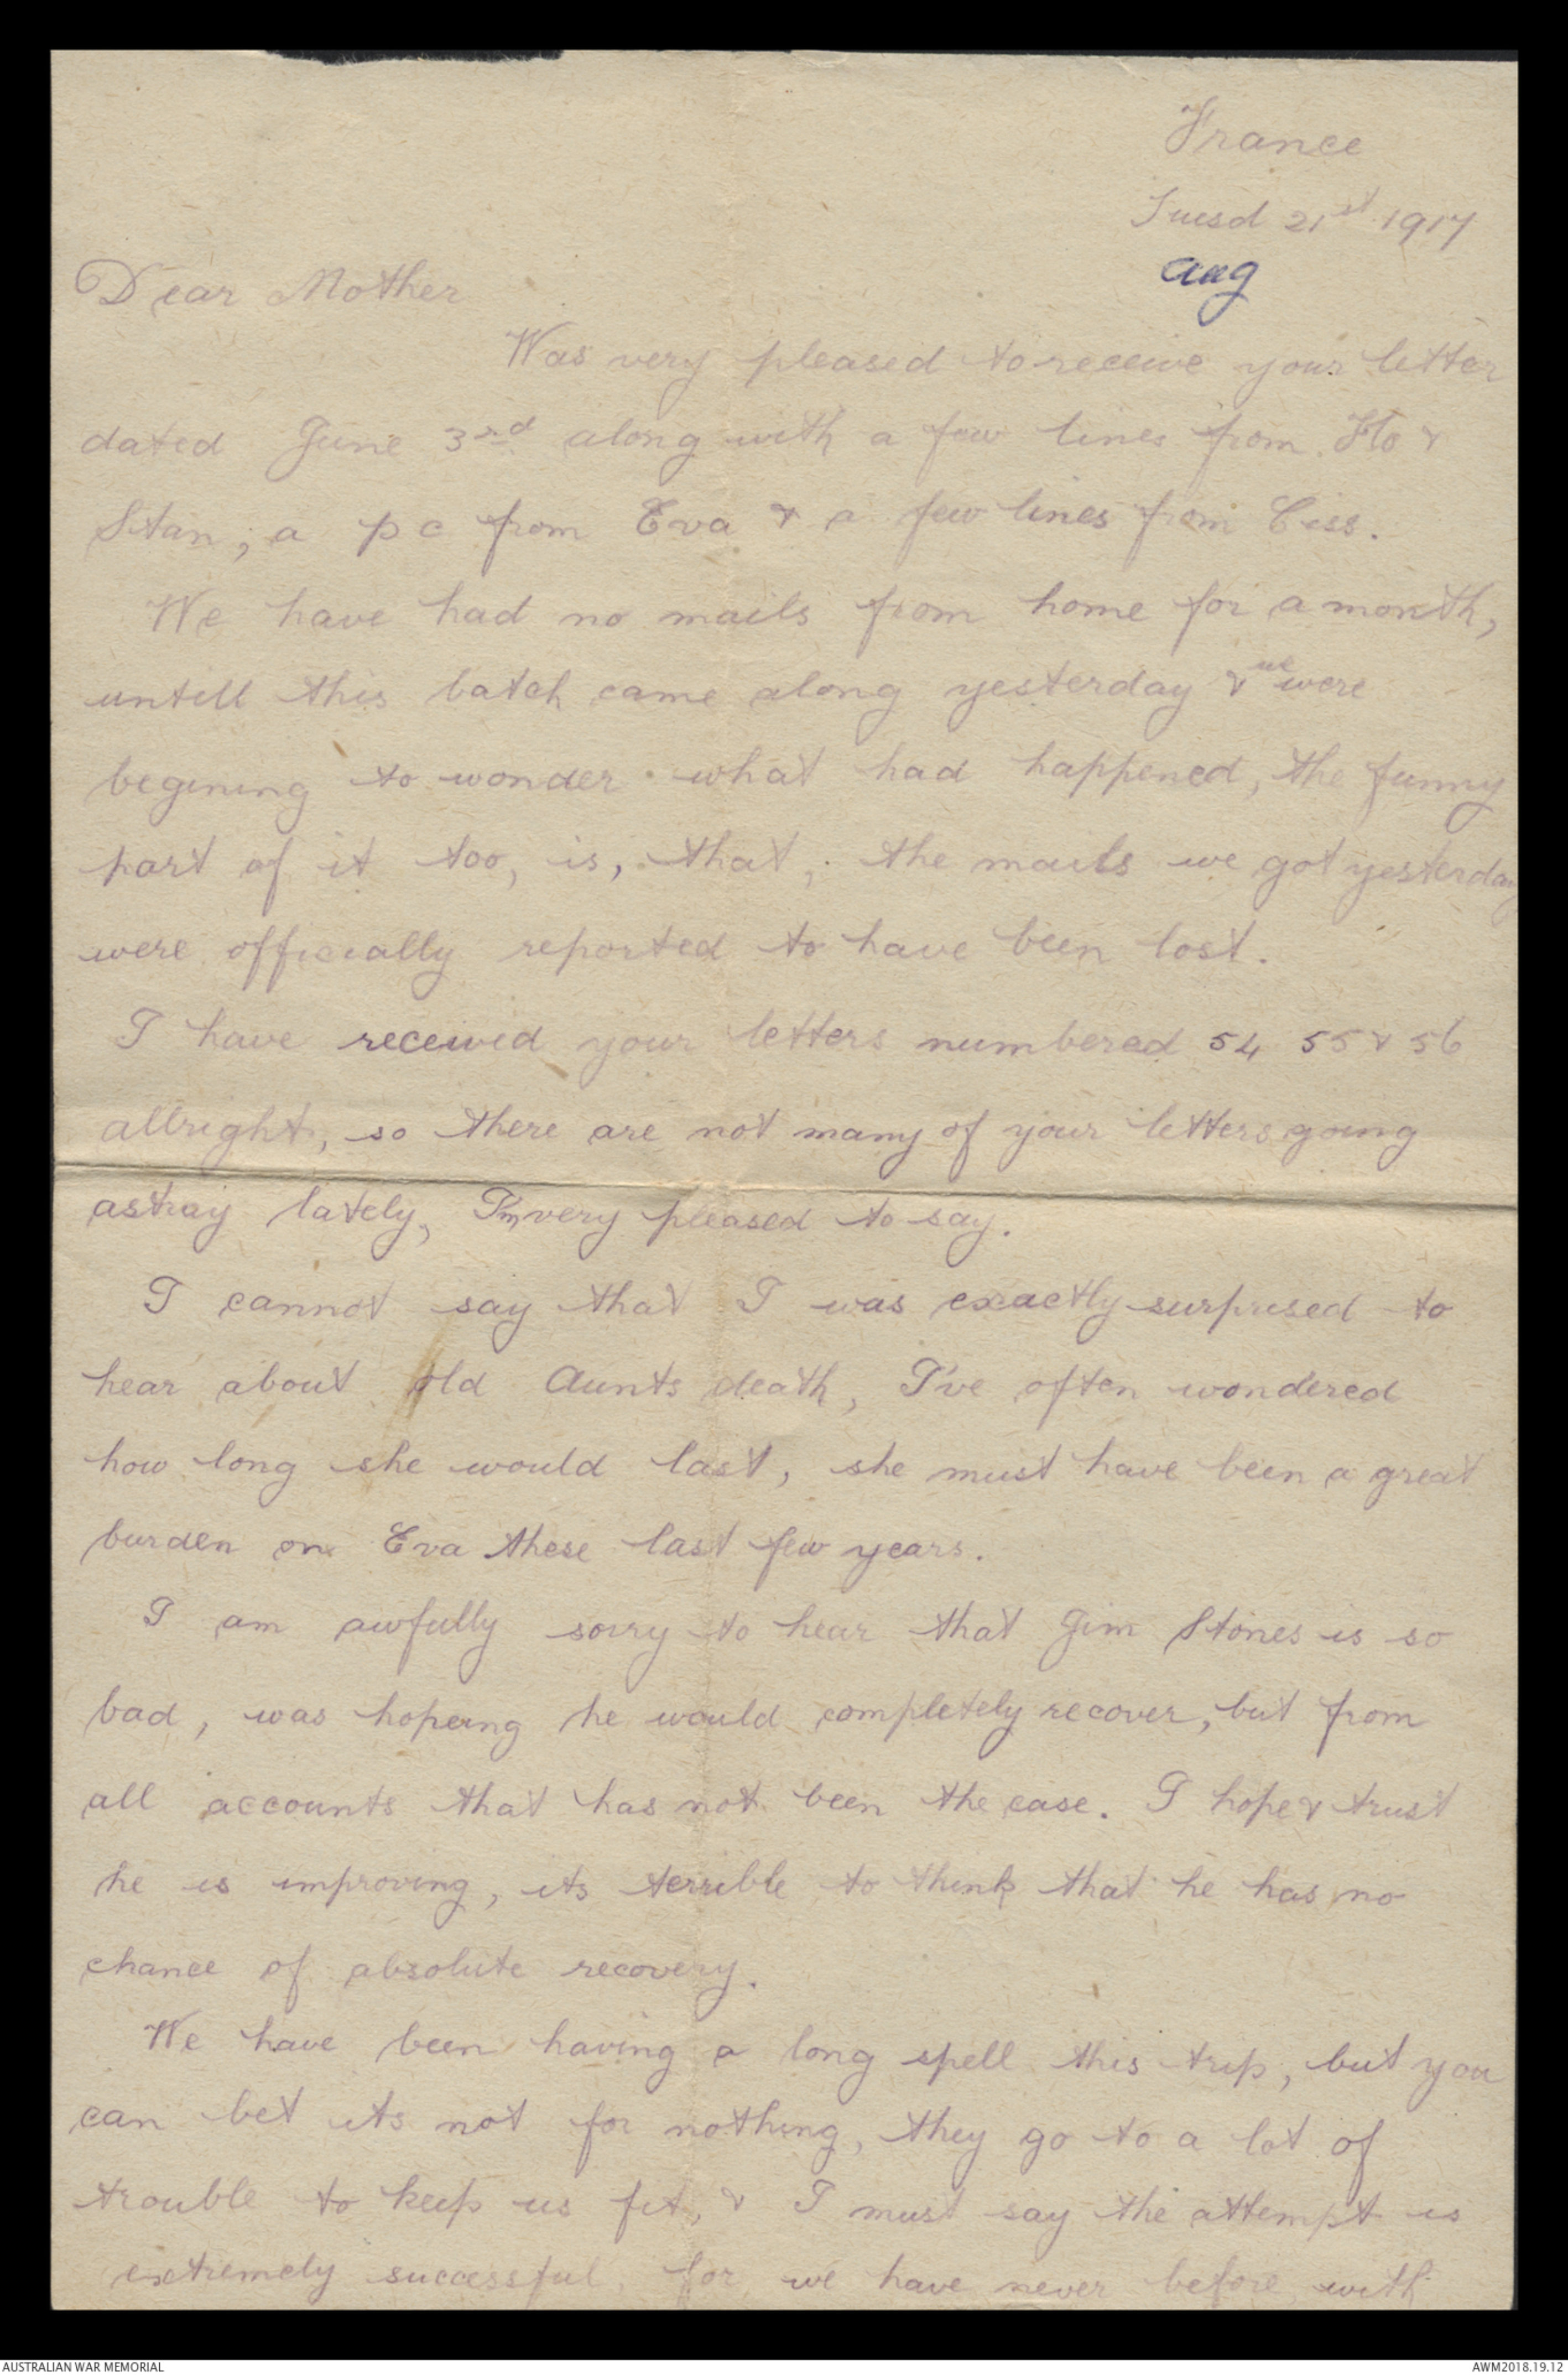 France
Tuesd 21st 1917
Aug
Dear Mother
Was very pleased to receive your letter
dated June 3rd along with a few lines from Flo &
Stan, a pc from Eva & a few lines from Ciss.
We have had no mails from home for a month,
untill this batch came along yesterday & we were
begining to wonder what had happened, the funny
part of it too, is, that, the mails we got yesterday
were officially reported to have been lost.
I have received your letters numbered 54 55 & 56
allright, so there are not many of your letters going
astray lately, I'm very pleased to say.
I cannot say that I was exactly surprised to
hear about old Aunts death, I've often wondered
how long she would last, she must have been a great
burden on Eva these last few years.
I am awfully sorry to hear that Jim Stones is so
bad, was hopeing he would completely recover, but from
all accounts that has not been the case. I hope & trust
he is improving, its terrible to think that he has no
chance of absolute recovery.
We have been having a long spell this trip, but you
can bet its not for nothing, they go to a lot of
trouble to keep us fit, & I must say the attempt is
extremely successful, for we have never before with
AUSTRALIAN WAR MEMORIAL
AWM2018.19.12